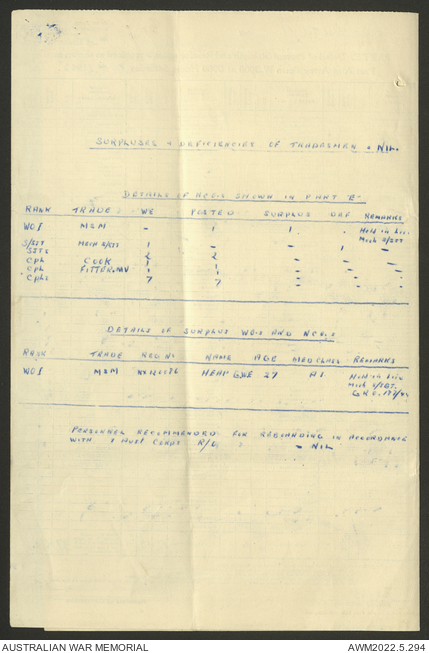 SURPLUSES & DEFICIENCIES OF TRADESMEN - NIL.
DETAILS OF NCO'S SHOWN IN PART "B"
RANK TRADE WE POSTED SURPLUS DEF REMARKS
WO I MSM - 1 1 . Held in lieu
Mech S/SJT
S/SJT MECH S/SJT 1 - - 1
SJTS 2 2 - -
CPL COOK 1 1 - -
CPL FITTER MV 1 1 - -
CPLS 7 7 - -
DETAILS OF SURPLUS WO'S AND NCO'S
RANK TRADE REG NO NAME AGE MED CLASS REMARKS
WO I MSM HEAP 27 A1 Held in lieu
Mech S/SJT.
PERSONNEL RECOMMENDED FOR REBOARDING IN ACCORDANCE
WITH 1 AUST CORPS R/O - NIL
AUSTRALIAN WAR MEMORIAL AWM2022.5.294